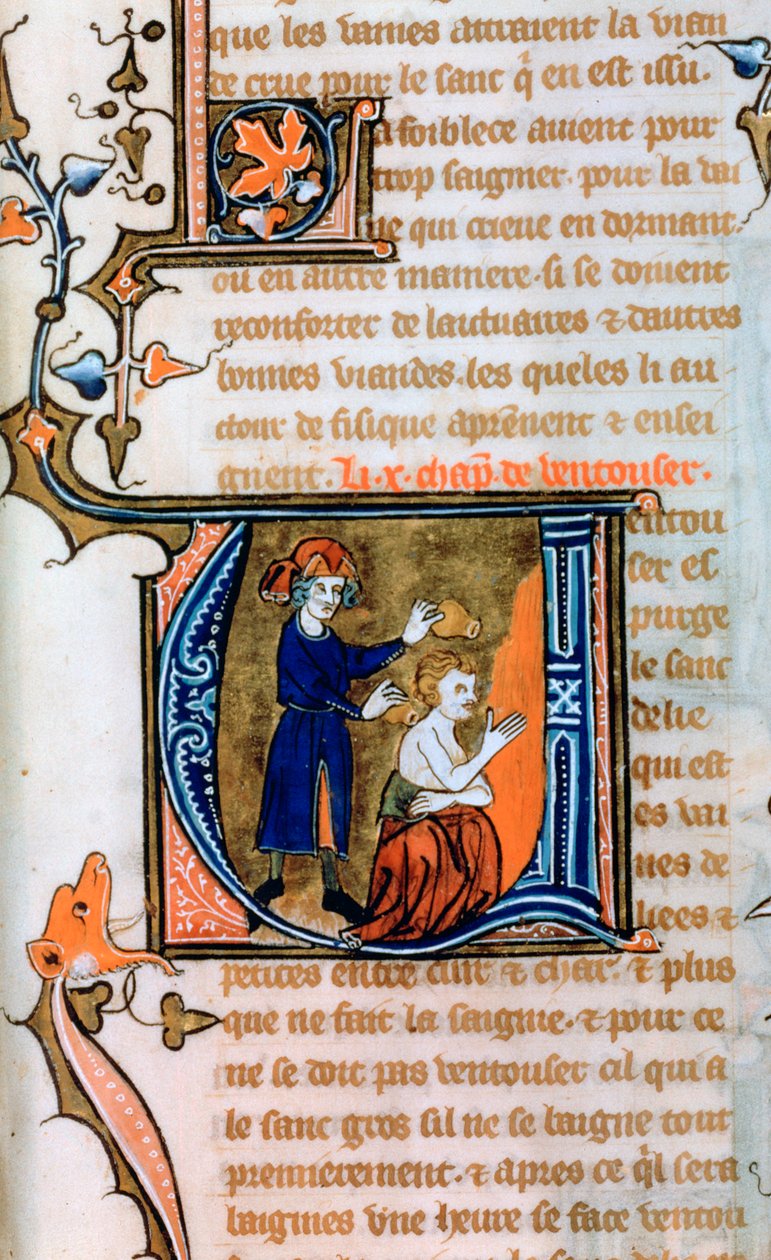 que les vaines attraient la vian
de crue pour le sanc q̃ en est issu.
La foiblece avient pour
trop saignier. pour la vai
ne qui crieve en dormant.
ou en autre maniere. si se doivent
reconforter de laituaires ⁊ dautres
bonnes viandes. les queles li au
ctour de fisique aprēnent ⁊ ensei
gnent. Li. x. chap̄. de ventouser.
Ventou
ser es
purge
le sanc
delie
qui est
es vai
nes de
liees ⁊
petites entre cuir ⁊ char. ⁊ plus
que ne fait la saignie. ⁊ pour ce
ne se doit pas ventouser cil qui a
le sanc gros sil ne se baigne tout
premierement. ⁊ apres ce q̄l sera
baignies vne heure se face ventou